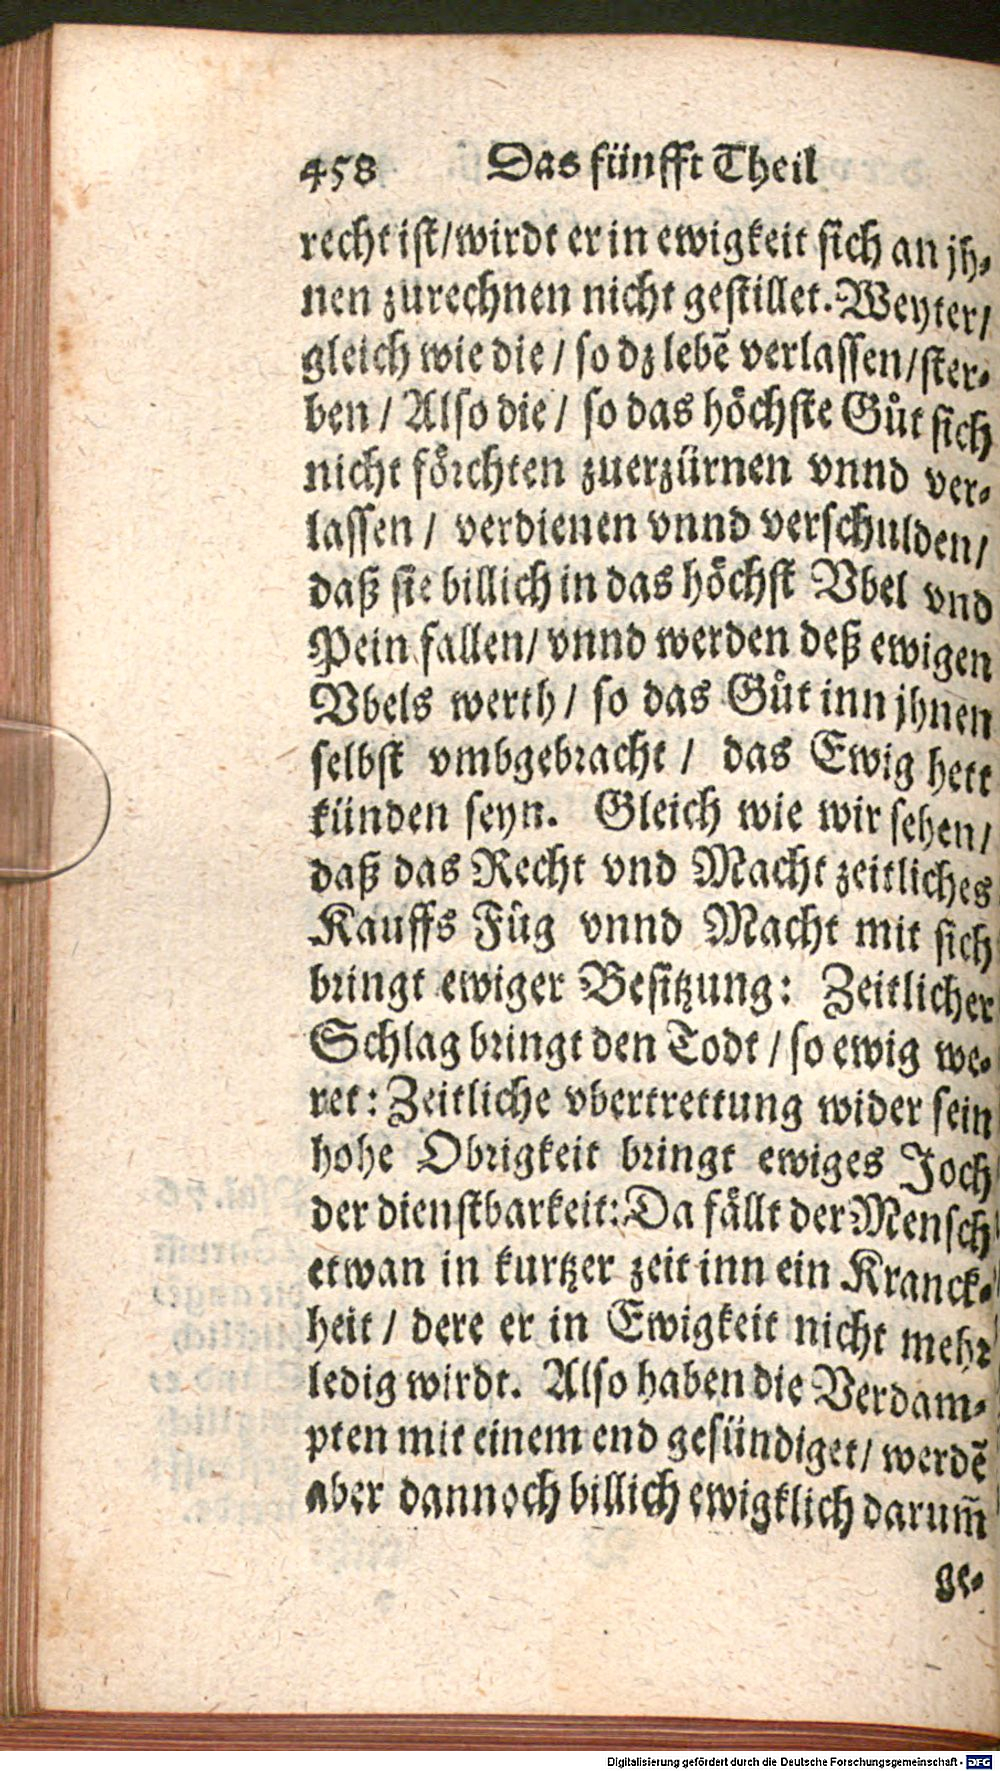 458 Das fünfft Theil
recht ist/wirdt er in ewigkeit sich an jh-
nen zurechnen nicht gestillet. Weyter/
gleich wie die / so dz lebẽ verlassen/ster-
ben / Also die / so das höchste Gůt sich
nicht förchten zuerzürnen vnnd ver-
lassen / verdienen vnnd verschulden/
daß sie billich in das höchst Vbel vnd
Pein fallen/ vnnd werden deß ewigen
Vbels werth / so das Gůt inn jhnen
selbst vmbgebracht / das Ewig hett
künden seyn. Gleich wie wir sehen/
daß das Recht vnd Macht zeitliches
Kauffs Füg vnnd Macht mit sich
bringt ewiger Besitzung: Zeitlicher
Schlag bringt den Todt / so ewig we-
ret: Zeitliche vbertrettung wider sein
hohe Obrigkeit bringt ewiges Joch
der dienstbarkeit: Da fällt der Mensch
etwan in kurtzer zeit inn ein Kranck-
heit / dere er in Ewigkeit nicht mehr
ledig wirdt. Also haben die Verdam-
pten mit einem end gesündiget/ werdẽ
aber dannoch billich ewigklich darum̃
ge-
Digitalisierung gefördert durch die Deutsche Forschungsgemeinschaft - DFG